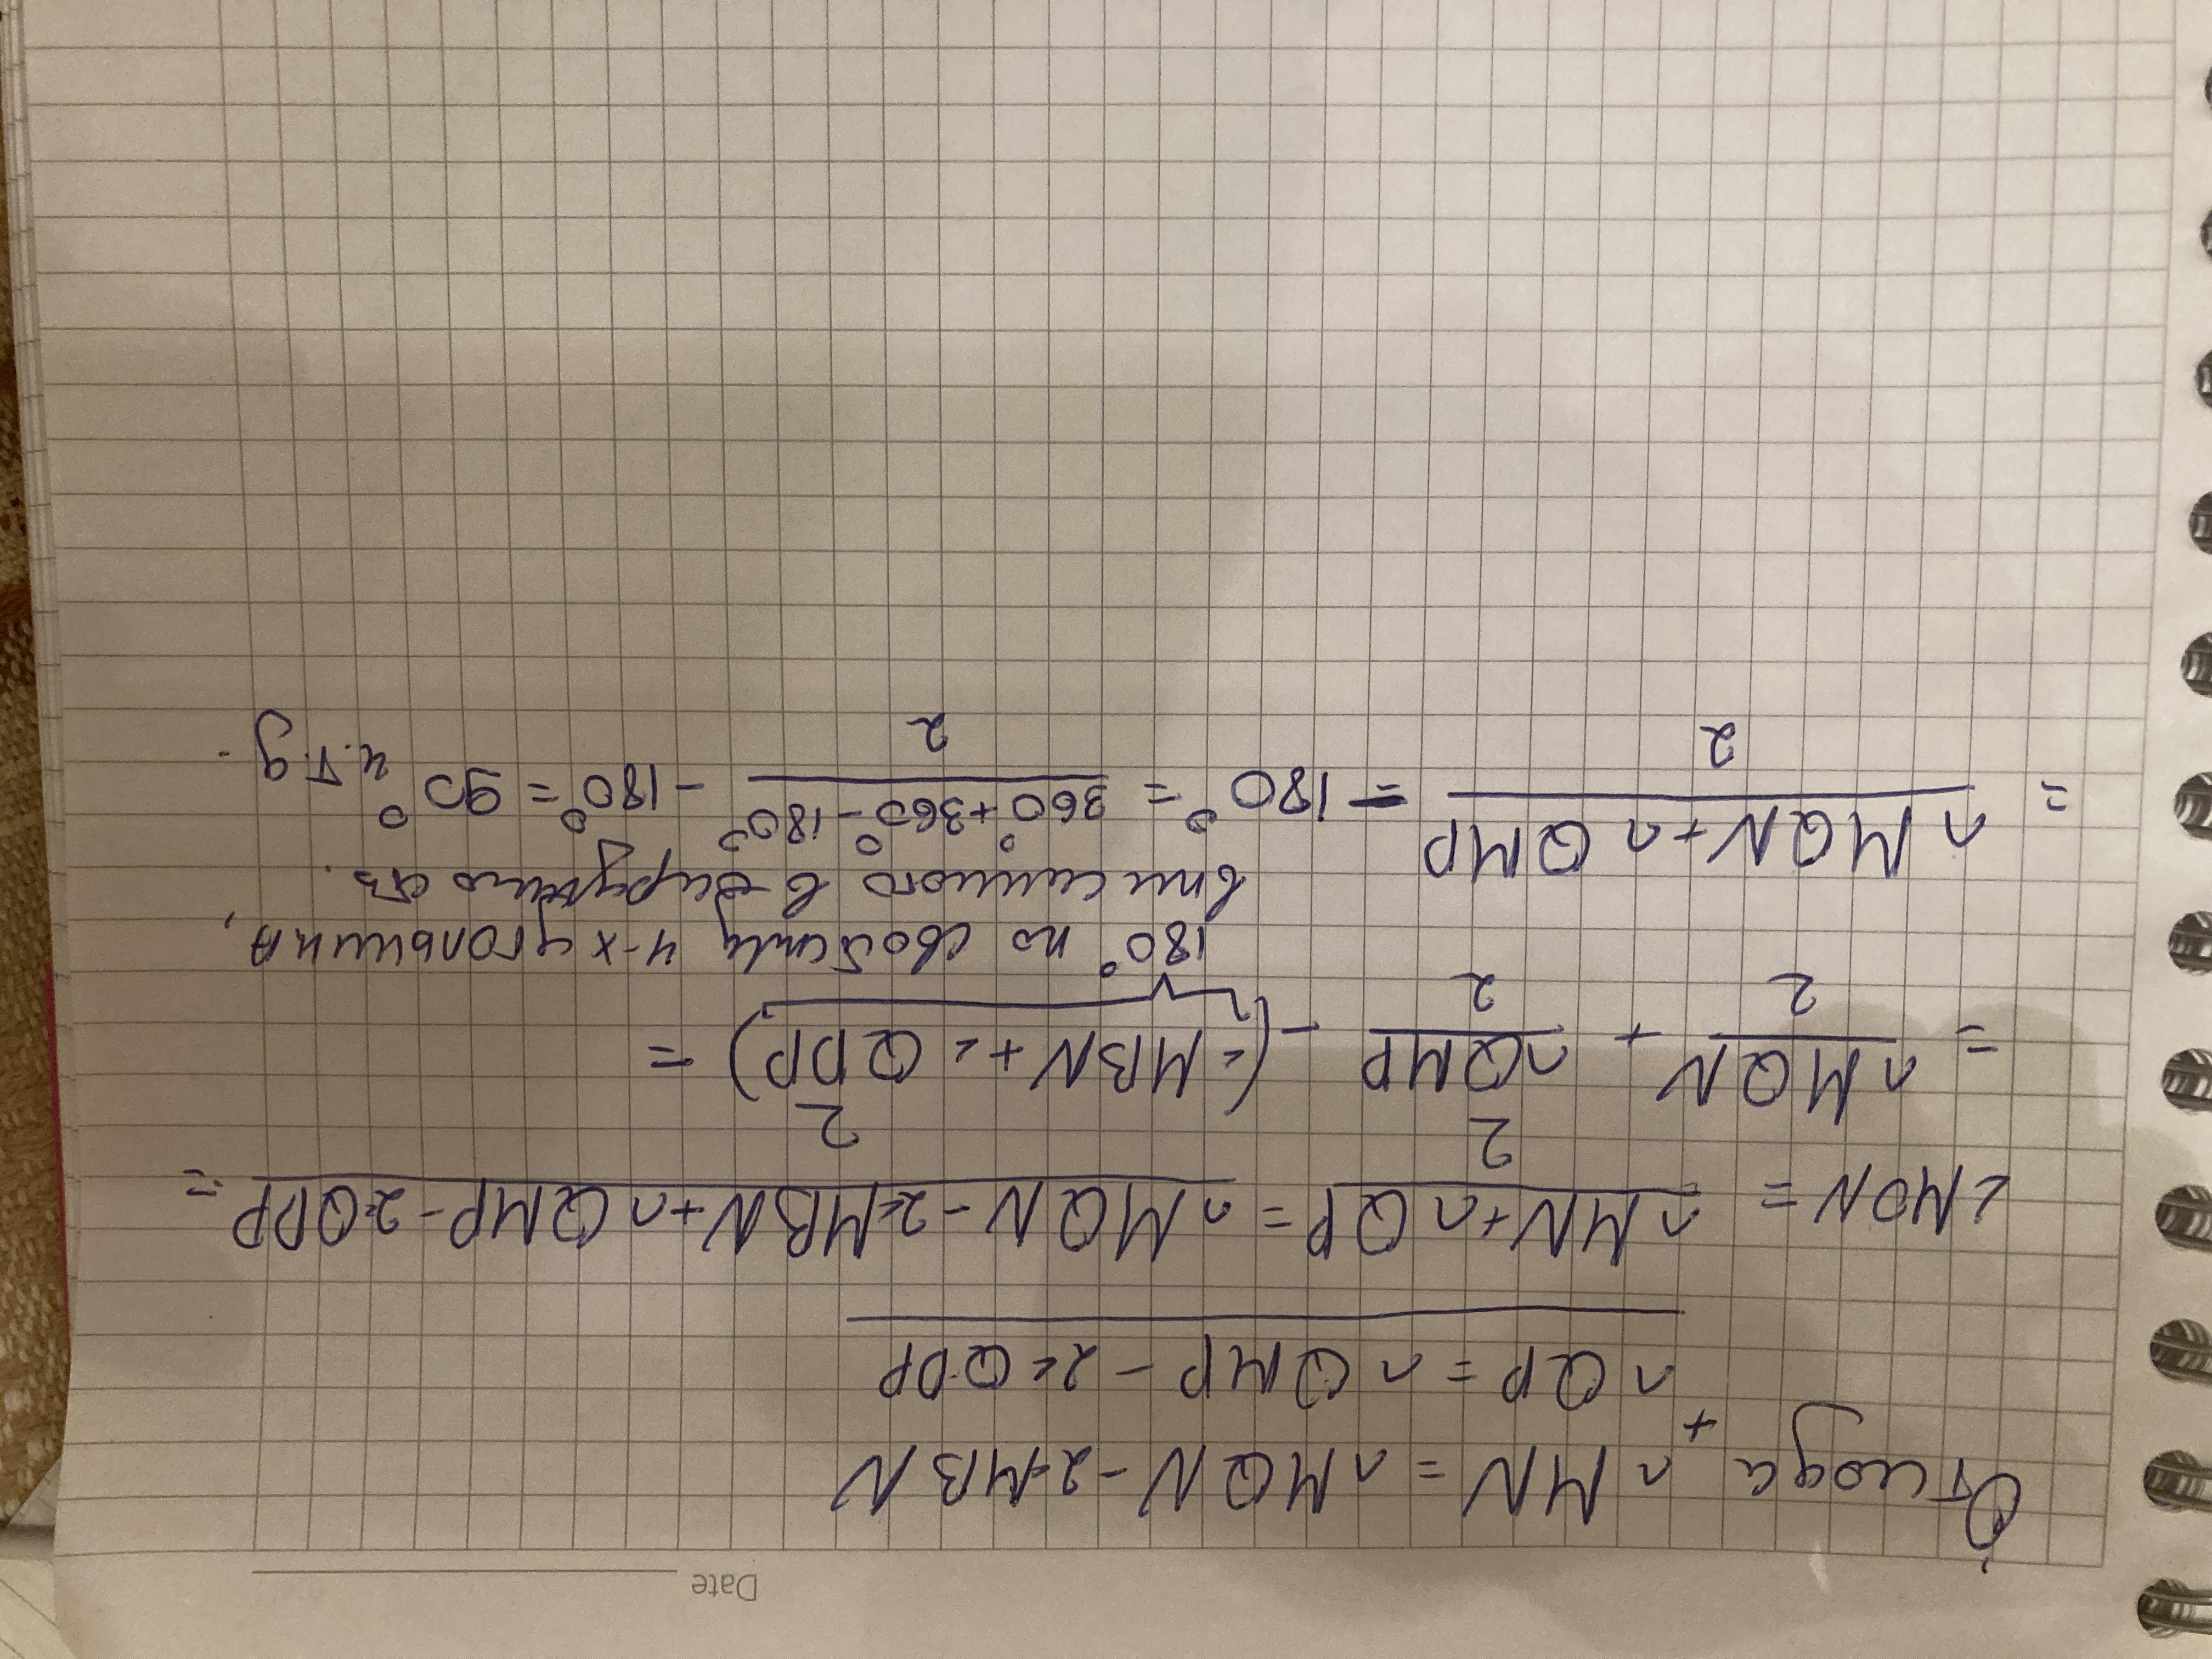 Date
Отсюда ∩MN = ∩MQN - 2∠MBN
+
∩QP = ∩QMP - 2∠QDP
∠MON = (∩MN + ∩QP)/2 = (∩MQN - 2∠MBN + ∩QMP - 2∠QDP)/2 =
= ∩MQN/2 + ∩QMP/2 - (∠MBN + ∠QDP) =
180° по свойству 4-х угольника,
вписанного в окружность.
= (∩MQN + ∩QMP)/2 - 180° = (360° + 360° - 180°)/2 - 180° = 90° ч.т.д.